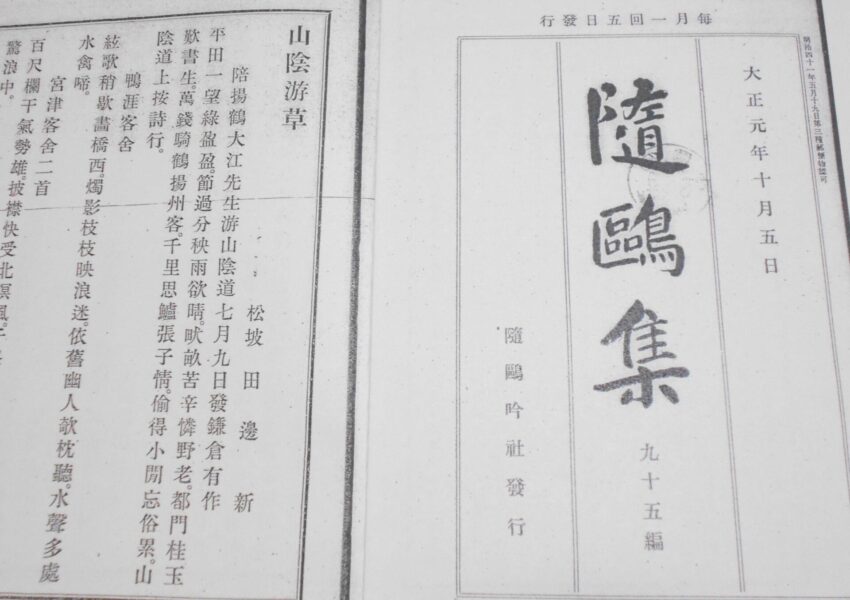 毎月一回五日發行
明治四十一年五月十九日第三種郵便物認可
大正元年十月五日
隨鷗集
九十五編
隨鷗吟社發行
山陰游草
松坡田邊新
陪揚鶴大江先生游山陰道七月九日發鎌倉有作
平田一望綠盈盈。節過分秧雨欲晴。畎畝苦辛憐野老。都門桂玉
歎書生。萬錢騎鶴揚州客。千里思鱸張子情。偷得小閒忘俗累。山
陰道上按詩行。
鴨涯客舍
絃歌稍歇畫橋西。燭影枝枝映浪迷。依舊幽人欹枕聽。水聲多處
水禽啼。
宮津客舍二首
百尺欄干氣勢雄。披襟快受北溟風。
驚浪中。